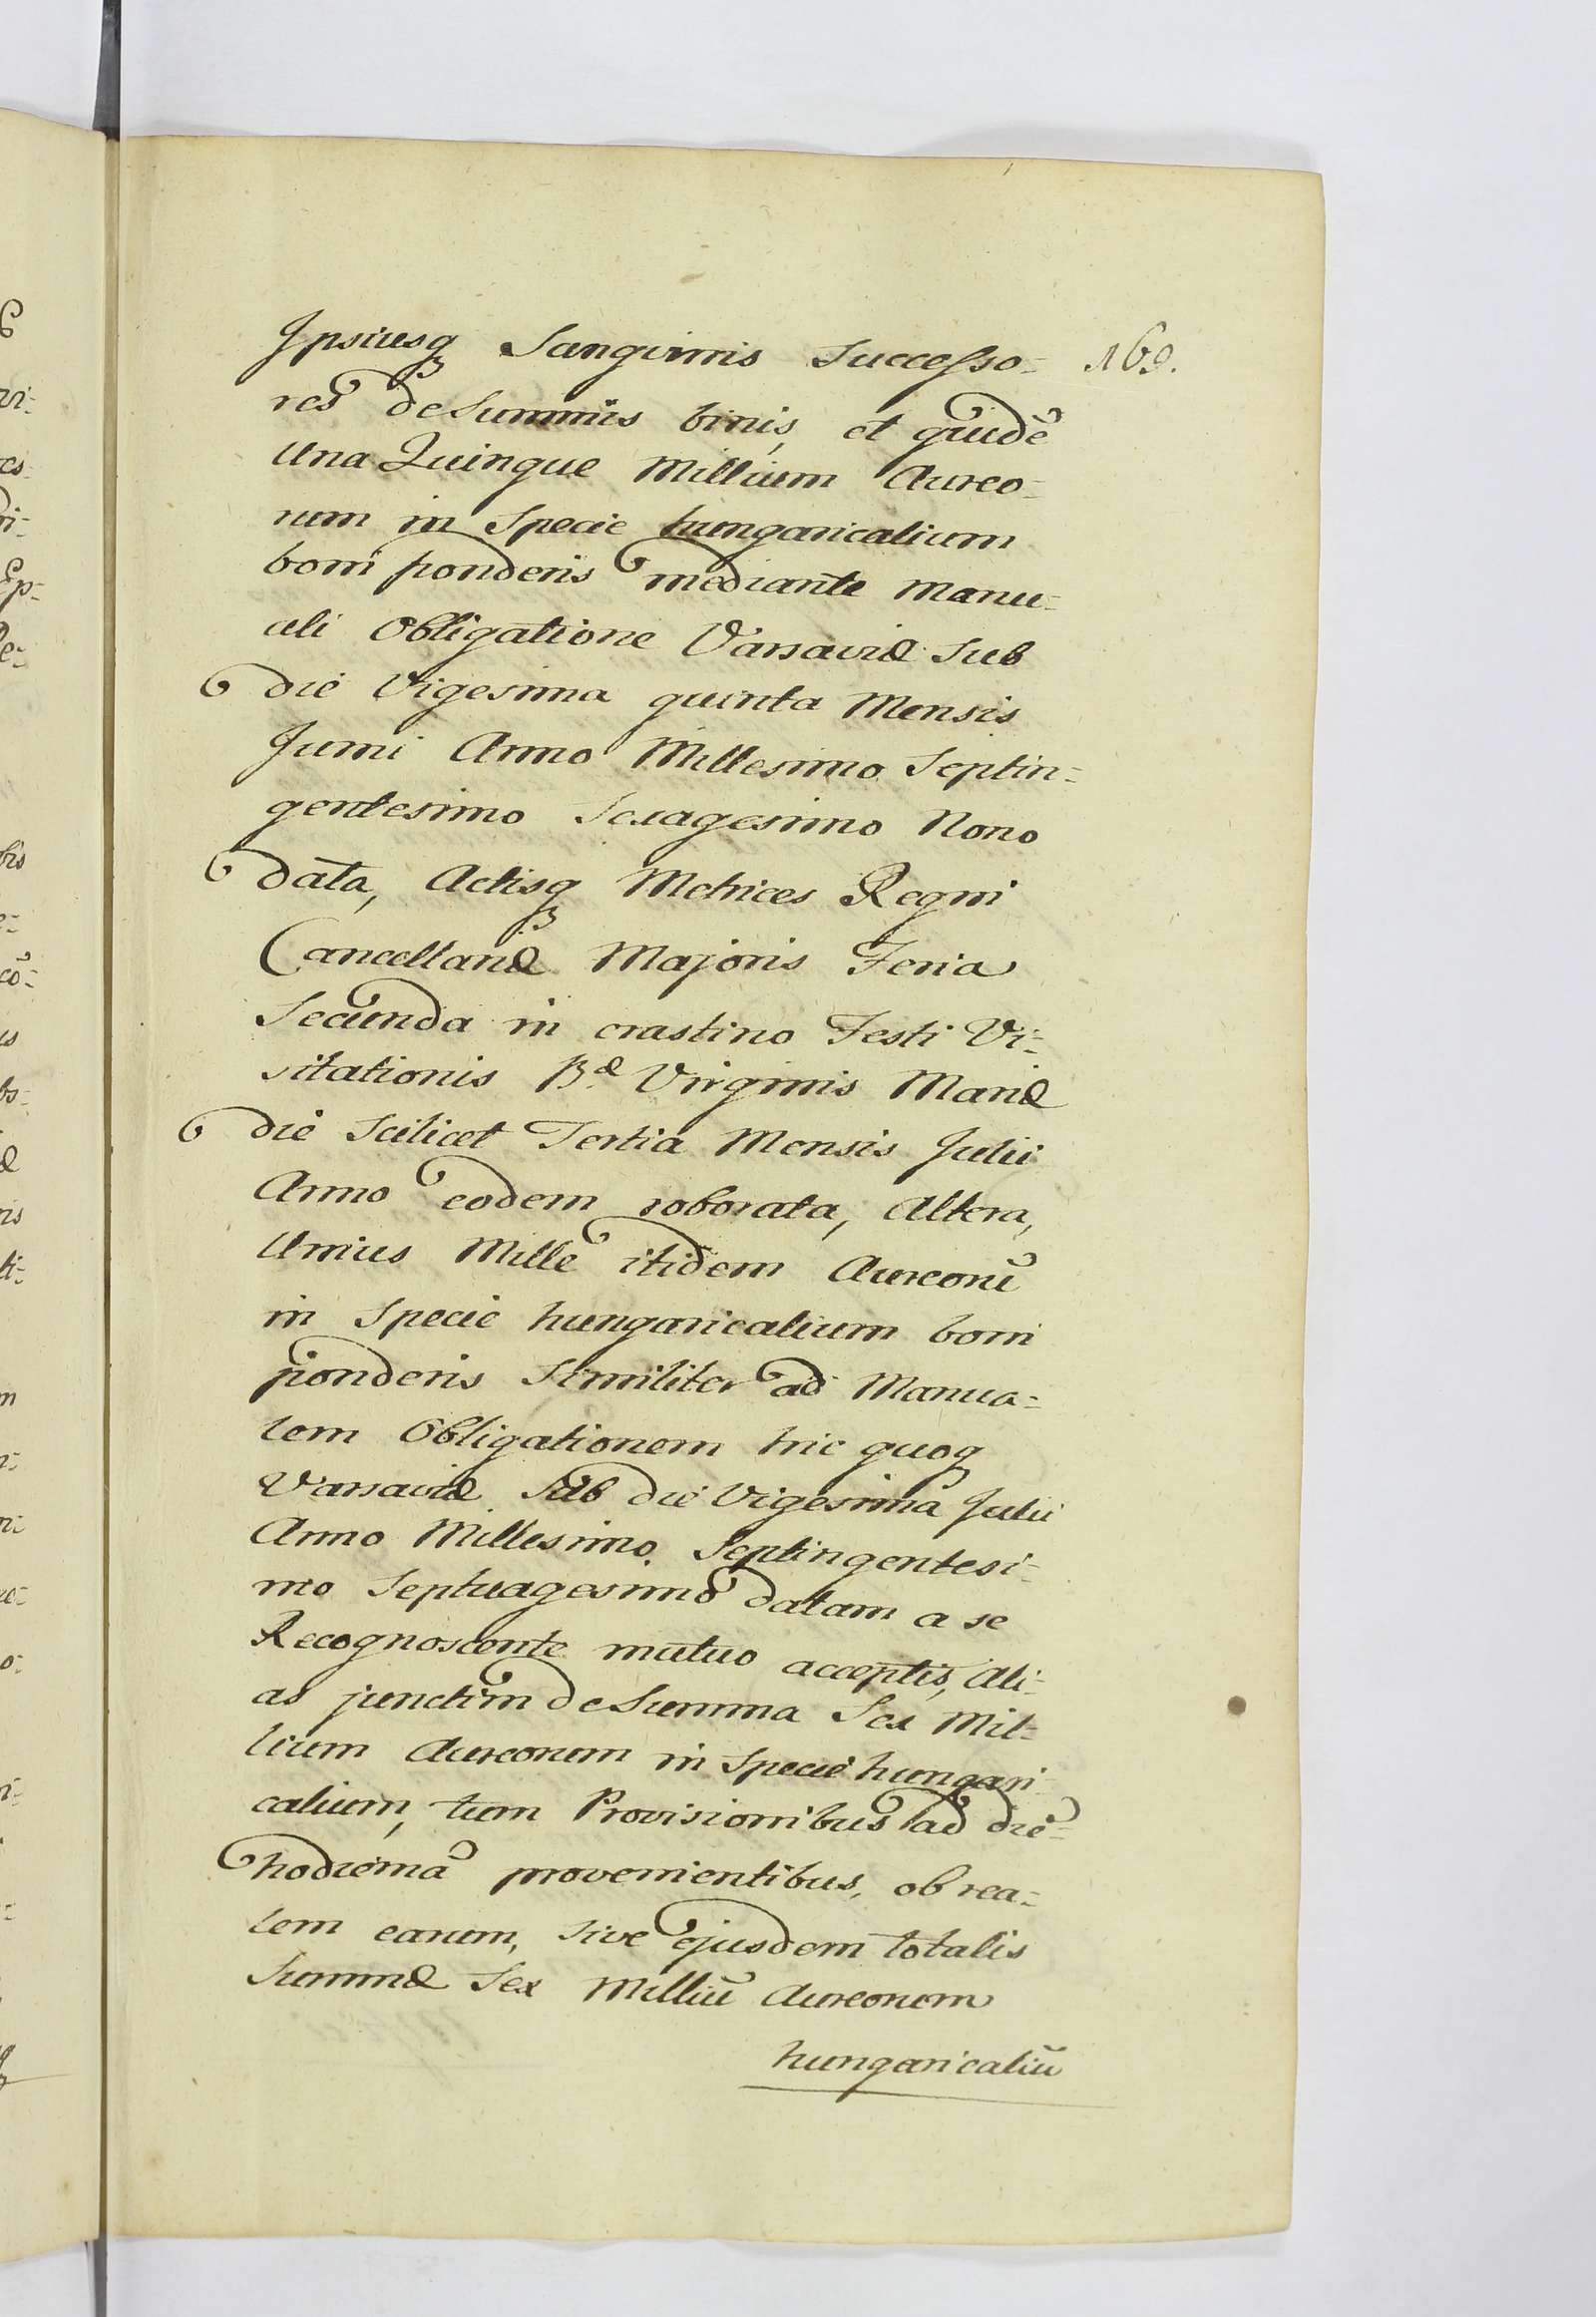 Ipsiusq₃ Sangvinis Successo=
169.
res de Summis binis, et quidē
Una Quinque Millium Aureo=
rum in Specie hungaricalium
boni ponderis mediante Manu=
ali Obligatione Varsaviæ Sub
die Vigesima quinta Mensis
Junii Anno Millesimo Septin=
gentesimo Sexagesimo Nono
data, Actisq₃ Metrices Regni
Cancellariæ Majoris Feria
Secunda in crastino Festi Vi=
sitationis B.æ Virginis Mariæ
die Scilicet Tertia Mensis Julii
Anno eodem roborata, Altera,
Unius Mille itidem Aureorū
in Specie hungaricalium boni
ponderis Similiter ad Manua=
lem Obligationem hic quoq₃
Varsaviæ Sub die Vigesima Julii
Anno Millesimo Septingentesi=
mo Septuagesimo datam a se
Recognoscente mutuo acceptis, Ali=
as junctim de Summa Sex Mil=
lium Aureorum in Specie hungari=
calium, tum Provisionibus ad diē=
hodiernā provenientibus, ob rea=
lem earum, Sive ejusdem totalis
Summæ Sex Milliū Aureorum
hungaricaliū